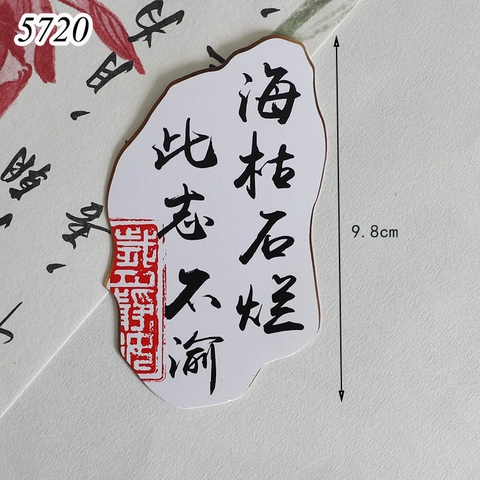 5720
海枯石烂
此志不渝
9.8cm